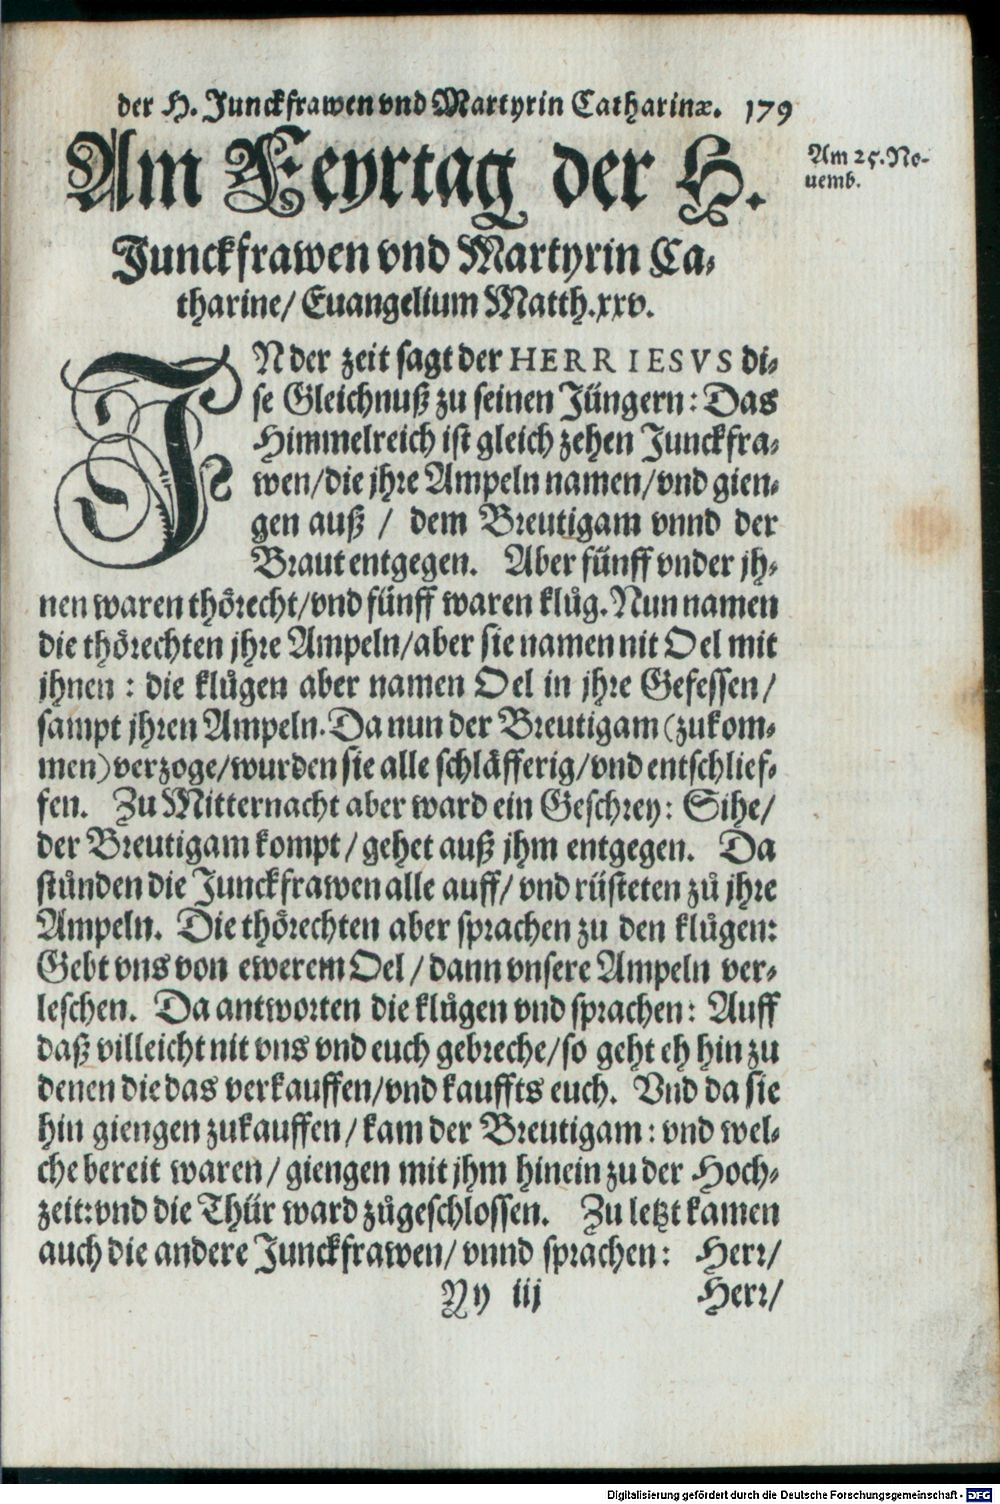 der H. Junckfrawen vnd Martyrin Catharinæ. 179
Am Feyrtag der H.
Am 25. No-
uemb.
Junckfrawen vnd Martyrin Ca-
tharine/ Euangelium Matth. xxv.
IN der zeit sagt der HERR IESVS di-
se Gleichnuß zu seinen Jüngern: Das
Himmelreich ist gleich zehen Junckfra-
wen/ die jhre Ampeln namen/ vnd gien-
gen auß / dem Breutigam vnnd der
Braut entgegen. Aber fünff vnder jh-
nen waren thörecht/ vnd fünff waren klůg. Nun namen
die thörechten jhre Ampeln/ aber sie namen nit Oel mit
jhnen : die klůgen aber namen Oel in jhre Gefessen/
sampt jhren Ampeln. Da nun der Breutigam (zukom-
men) verzoge/ wurden sie alle schläfferig/ vnd entschlief-
fen. Zu Mitternacht aber ward ein Geschrey: Sihe/
der Breutigam kompt / gehet auß jhm entgegen. Da
stůnden die Junckfrawen alle auff/ vnd rüsteten zů jhre
Ampeln. Die thörechten aber sprachen zu den klůgen:
Gebt vns von ewerem Oel / dann vnsere Ampeln ver-
leschen. Da antworten die klůgen vnd sprachen: Auff
daß villeicht nit vns vnd euch gebreche/ so geht eh hin zu
denen die das verkauffen/ vnd kauffts euch. Vnd da sie
hin giengen zukauffen/ kam der Breutigam: vnd wel-
che bereit waren/ giengen mit jhm hinein zu der Hoch-
zeit: vnd die Thür ward zůgeschlossen. Zu letzt kamen
auch die andere Junckfrawen/ vnnd sprachen: Herr/
Yy iij Herr/
Digitalisierung gefördert durch die Deutsche Forschungsgemeinschaft - DFG